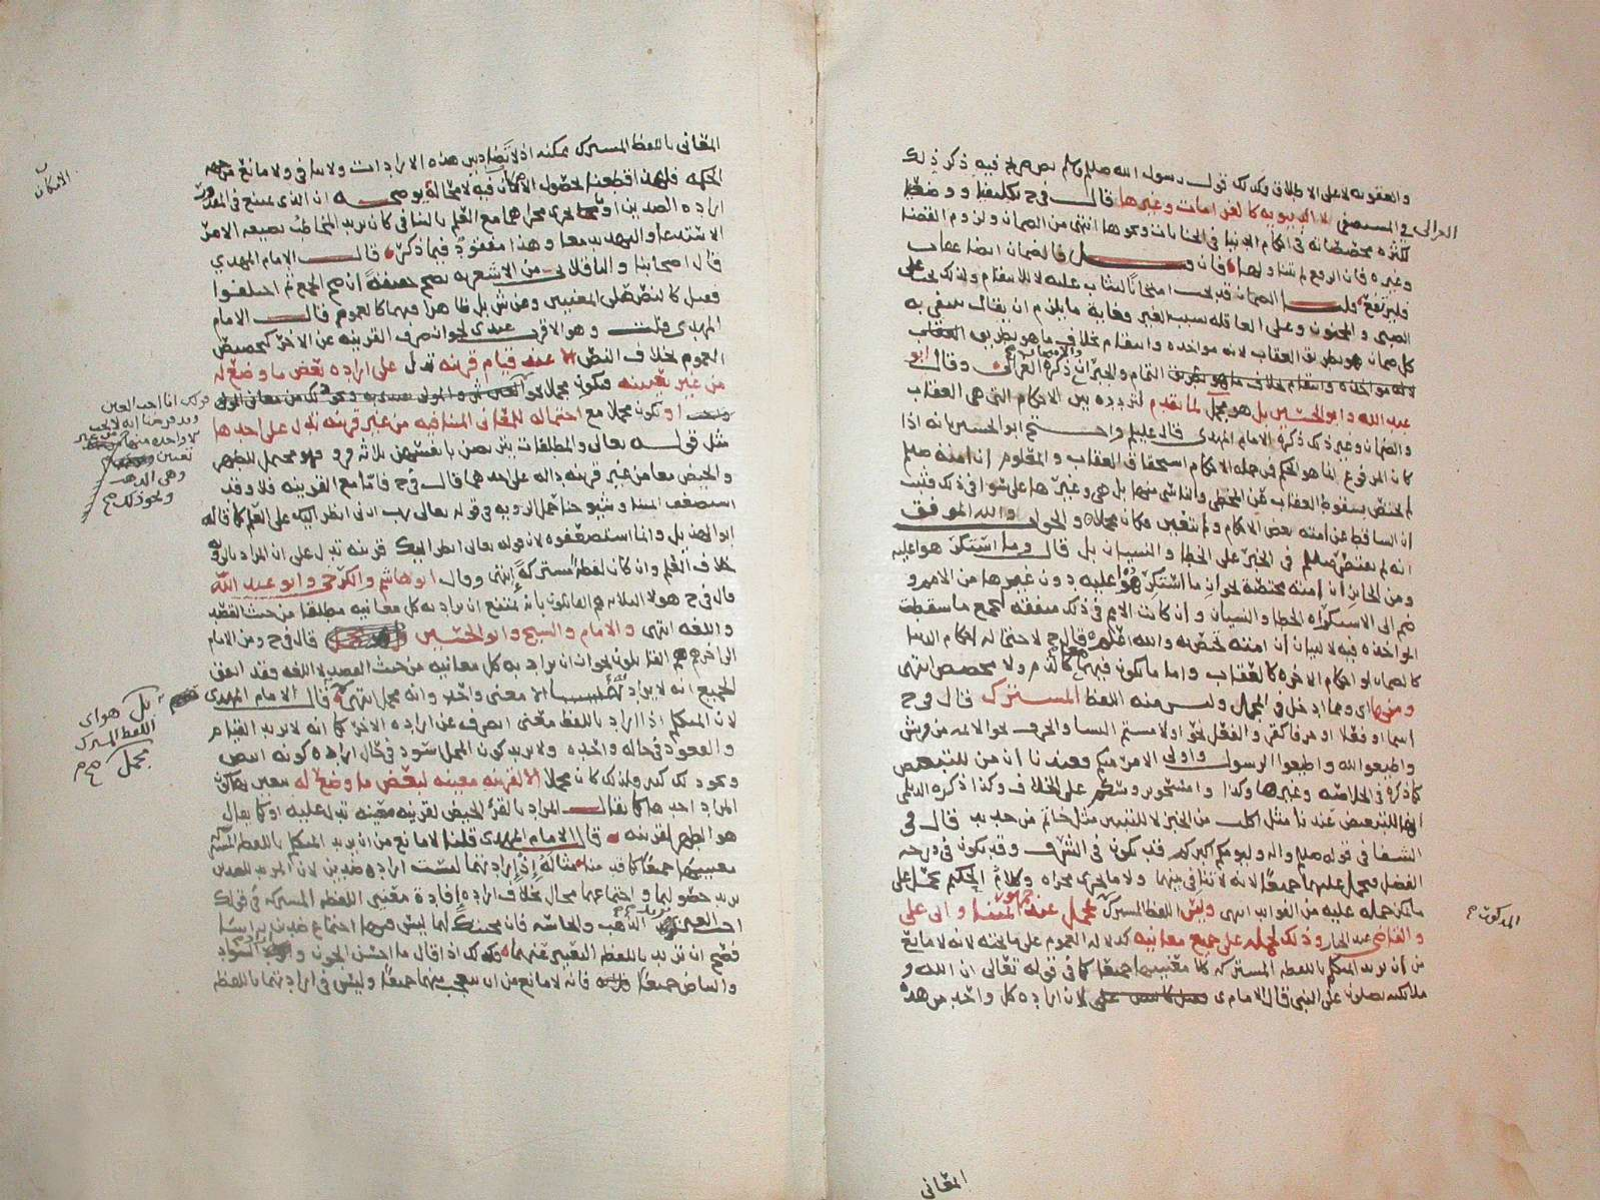 والعقوبه لا على الاطلاق وكذلك قول رسول الله صلعم لم يجر فيه ذكر ذلك
الغزالى فى المستصفى لا الدنيويه كالغرامات وغيرها قال فى ح
وغيره فان الرفع لم يتناولها فان قيل فالضمان ايضا عقاب
فليرتفع قلت الضمان قد يجب امتحانًا ليثاب عليه لا للانتقام ولذلك يجب على
الصبى و المجنون وعلى العاقله بسبب الغير وغاية ما يلزم ان يقال ينتفى به
كل ضمان هو بطريق العقاب لانه مواخذه وانتقام بخلاف ما هو بطريق
وقال ابو
عبد الله وابو الحسين بل هو مجمل لما تقدم لتردده بين الاحكام التى هى العقاب
والضمان وغير ذلك ذكره الامام المهدى قال عليلم واحتج ابو الحسين بانه اذا
كان المرفوع انما هو الحكم فمن جمله الاحكام استحقاق العقاب و المعلوم ان امته صلعم
لم تختص بسقوط العقاب عن المخطى والناسى منها بل هى وغيرها على سوا فى ذلك فثبت
ان الساقط عن امته بعض الاحكام ولم يتعين فكان مجملا و الجواب والله الموفق
انه لم يقتصر صلعم فى الخبر على الخطا و النسيان بل قال وما استكرهوا عليه
ومن الجائز ان امته مختصة بجواز ما استكرهوا عليه دون غيرها من الامم و
ضم الى الاستكراه الخطا والنسيان و ان كانت الامم فى ذلك متفقه لجمع ما سقطت
المواخذه فيه لا لبيان ان امته تختص به والله اعلم قال ح لاحتماله احكام الدنيا
كالضمان او احكام الاخره كالعقاب واما ما يكون فيهما كالذم ولا مخصص انتهى
ومنها اى ومما ادخل فى المجمل وليس منه اللفظ المشترك قال فى ح
اسما او فعلا او حرفا كقرء والفعل نحو او لامستم النسا والحرف نحو
واطيعوا الله واطيعوا الرسول واولى الامر منكم وعندنا ان من للتبعيض
كما ذكره فى الخلاصه وغيرها وكذا وامسحوا برءوسكم على الخلاف وكذا ذكره الديلمى
انها للتبعيض عندنا مثل اكلت من الخبز لا للتبيين مثل خاتم من حديد قال فى
الشفا فى قوله صلى عليه واله وليومكم اكبركم قد يكون فى الشرف وقد يكون فى درجه
الفضل فيحمل عليهما جميعا لانه لا تنافى بينهما ولا ما يجرى مجراه وكلام الحكيم يحمل على
ما يمكن حمله عليه من الفوايد انتهى وليس اللفظ المشترك بمجمل عند جمهور ائمتنا و ابى على
و القاضى عبد الجبار وذلك لحمله على جميع معانيه كدلاله العموم على ما تحته لانه لا مانع
من ان يريد المتكلم باللفظه المشتركه كلا معنييها جميعا كما فى قوله تعالى ان الله و
ملائكته يصلون على النبى قال الامام ى لان اراده كل واحد من هذه
المذكور ح
المعانى
المعانى باللفظ المشترك ممكنه اذ لا تضاد بين هذه الارادات ولا تنافى ولا مانع من جهه
الحكمه فلهذا قطعنا بحصول الامكان فيه لا محاله يوضحه ان الذى يمتنع فى المقدور
اراده الضدين او ما يجرى مجراهما مع العلم بالتنافى كان يريد المخاطب بصيغه الامر
الاستدعا والتهديد معا وهذا مفقود فيما ذكرنا قال الامام المهدى
قال اصحابنا والباقلانى من الاشعريه يصح حقيقة ان صح الجمع ثم اختلفوا
فقيل كالنص على المعنيين وعن ش بل ظاهرا فيهما كالعموم قال الامام
المهدى قلت وهو الاقرب عندى لجواز صرف القرينه عن الاخر كتخصيص
العموم بخلاف النص الا عند قيام قرينه تدل على اراده بعض ما وضع له
من غير تعيينه فيكون مجملا
او يكون مجملا مع احتماله للمعانى المتنافيه من غير قرينه تدل على احدها
مثل قوله تعالى والمطلقات يتربصن بانفسهن ثلاثه قرو فهو محتمل للطهر
والحيض معا من غير قرينه داله على احدهما قال فى ح فاما مع القرينه فلا وقد
استضعف السيد و شيوخنا حمل الرويه فى قوله تعالى رب ارنى انظر اليك على العلم كما قاله
ابو الهذيل وانما استضعفوه لان قوله تعالى انظر اليك قرينه تدل على ان المراد بالرويه
خلاف العلم وان كان لفظه مشتركة انتهى وقال ابو هاشم والكرخى وابو عبد الله
قال فى ح هولا الثلاثه هم القايلون بانه يمتنع ان يراد به كل معانيه مطلقا من حيث القصد
واللغه انتهى والامام والشيخ وابو الحسين قال فى ح ومن الامام
الى اخرهم هم القايلون بجواز ان يراد به كل معانيه من حيث القصد لا اللغه فقد اتفق
الجميع انه لا يراد الا معنى واحد وانه مجمل انتهى قال الامام المهدى
لان المتكلم اذا اراد باللفظ معنى انصرف عن اراده الاخر كما انه لا يريد القيام
والقعود فى حاله واحده ولا يريد كون المحل اسود فى حال اراده كونه ابيض
ونحو ذلك كثير ولذلك كان مجملا الا لقرينه معينه لبعض ما وضع له
المراد احدها كما يقال المراد بالقرء الحيض لقرينه معينه تدل عليه او كما يقال
هو الطهر لقرينه قال الامام المهدى قلنا لا مانع من ان يريد المتكلم باللفظ المشترك
معنييهما جميعا كما قدمنا مثاله اذ ارادتهما ليست اراده ضدين لان المريد للضدين
يريد حصولهما و اجتماعهما محال بخلاف اراده افادة معنيى اللفظه المشتركه فى قولك
الذهب والحاسه فان محبتك لهما ليس فيها اجتماع ضدين
فصح ان تريد باللفظ التعبير عنهما وكذلك اذا قال ما احسن الجون و السواد
والبياض جميعا فانه لا مانع من ان يتعجب منهما جميعا وليس فى ارادتهما باللفظه
الامكان
وهى الذهب
ونحو ذلك ح
بل هو اى
اللفظ المشترك
مجمل ح